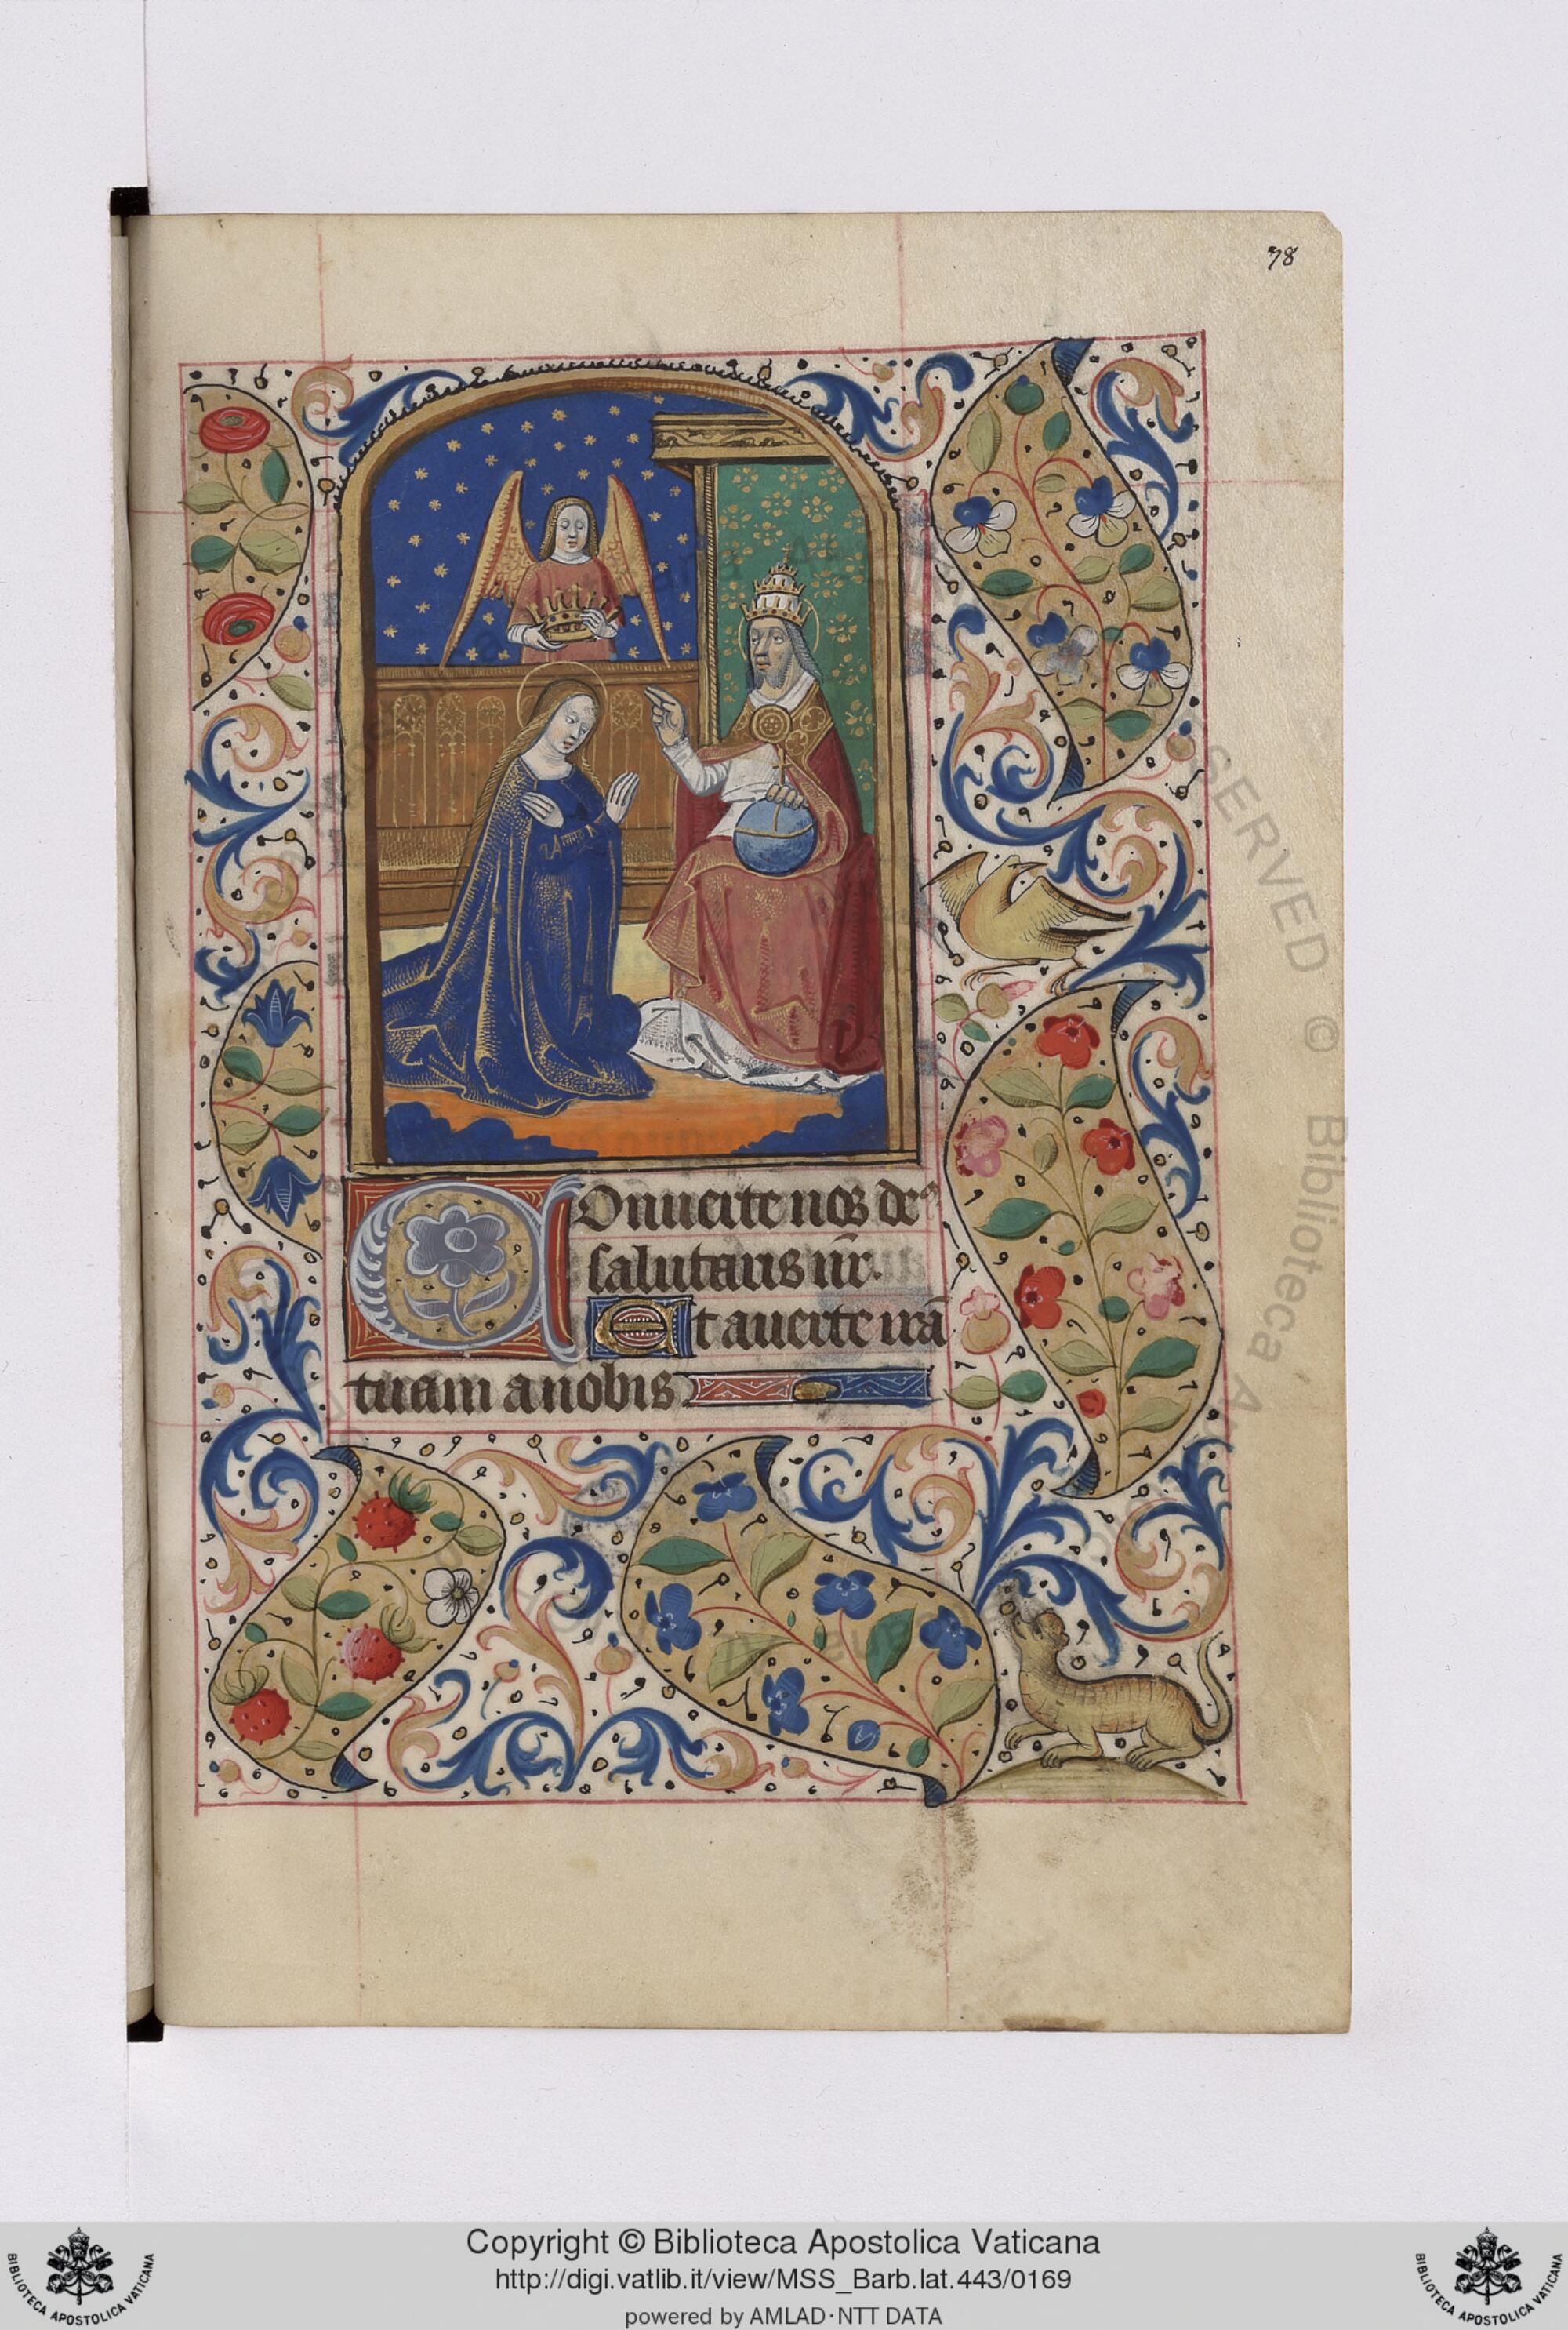 78
Conuerte nos de⁹
salutaris nr̄.
Et auerte irā
tuam a nobis
SERVED © Biblioteca A
Copyright © Biblioteca Apostolica Vaticana
http://digi.vatlib.it/view/MSS_Barb.lat.443/0169
powered by AMLAD·NTT DATA
BIBLIOTECA APOSTOLICA VATICANA
BIBLIOTECA APOSTOLICA VATICANA